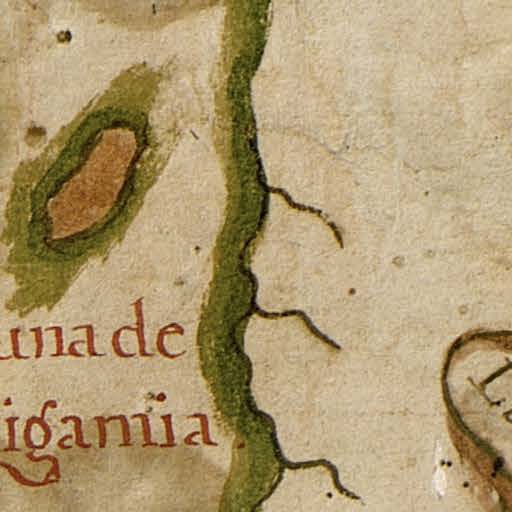 una de
igamia.